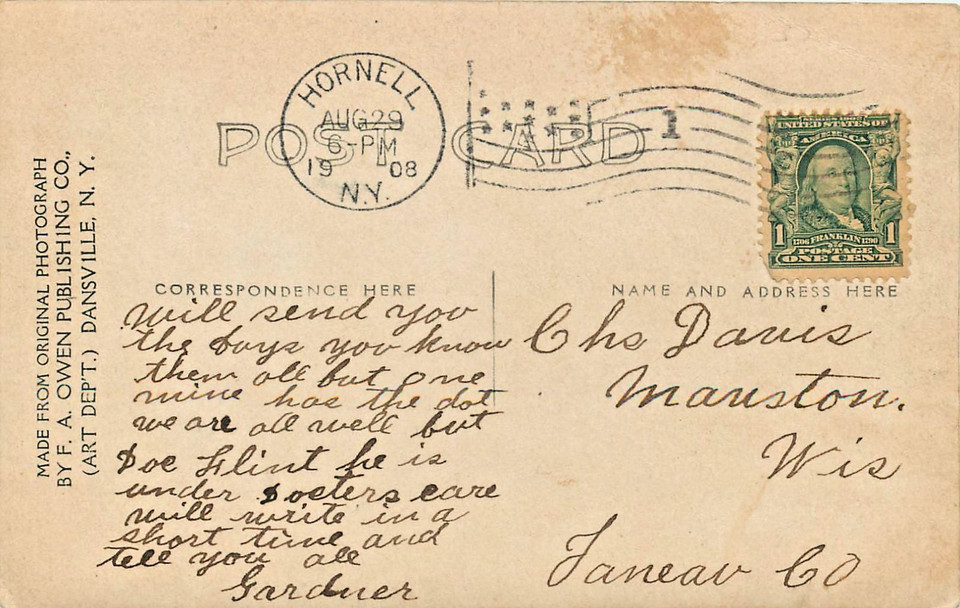 HORNELL
AUG 29
6-PM
19 08
N.Y.
POST CARD
1
SERIES 1902
UNITED STATES OF
AMERICA
1 1
1706 FRANKLIN 1790
POSTAGE
ONE CENT
MADE FROM ORIGINAL PHOTOGRAPH
BY F. A. OWEN PUBLISHING CO.,
(ART DEP'T.) DANSVILLE, N. Y.
CORRESPONDENCE HERE
will send you
the boys you know
them all but one
mine has the dot
we are all well but
Doc Flint he is
under Docters care
will write in a
short time and
tell you all
Gardner
NAME AND ADDRESS HERE
Chs Davis
Mauston.
Wis
Juneau Co